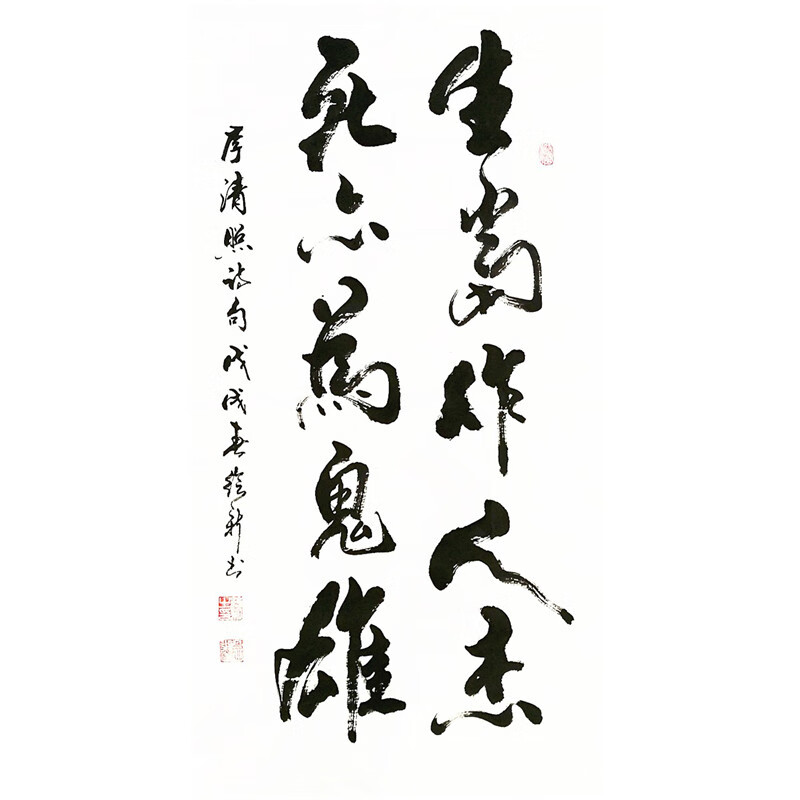 生當作人杰
死亦為鬼雄
李清照詩句戊戌春 新书